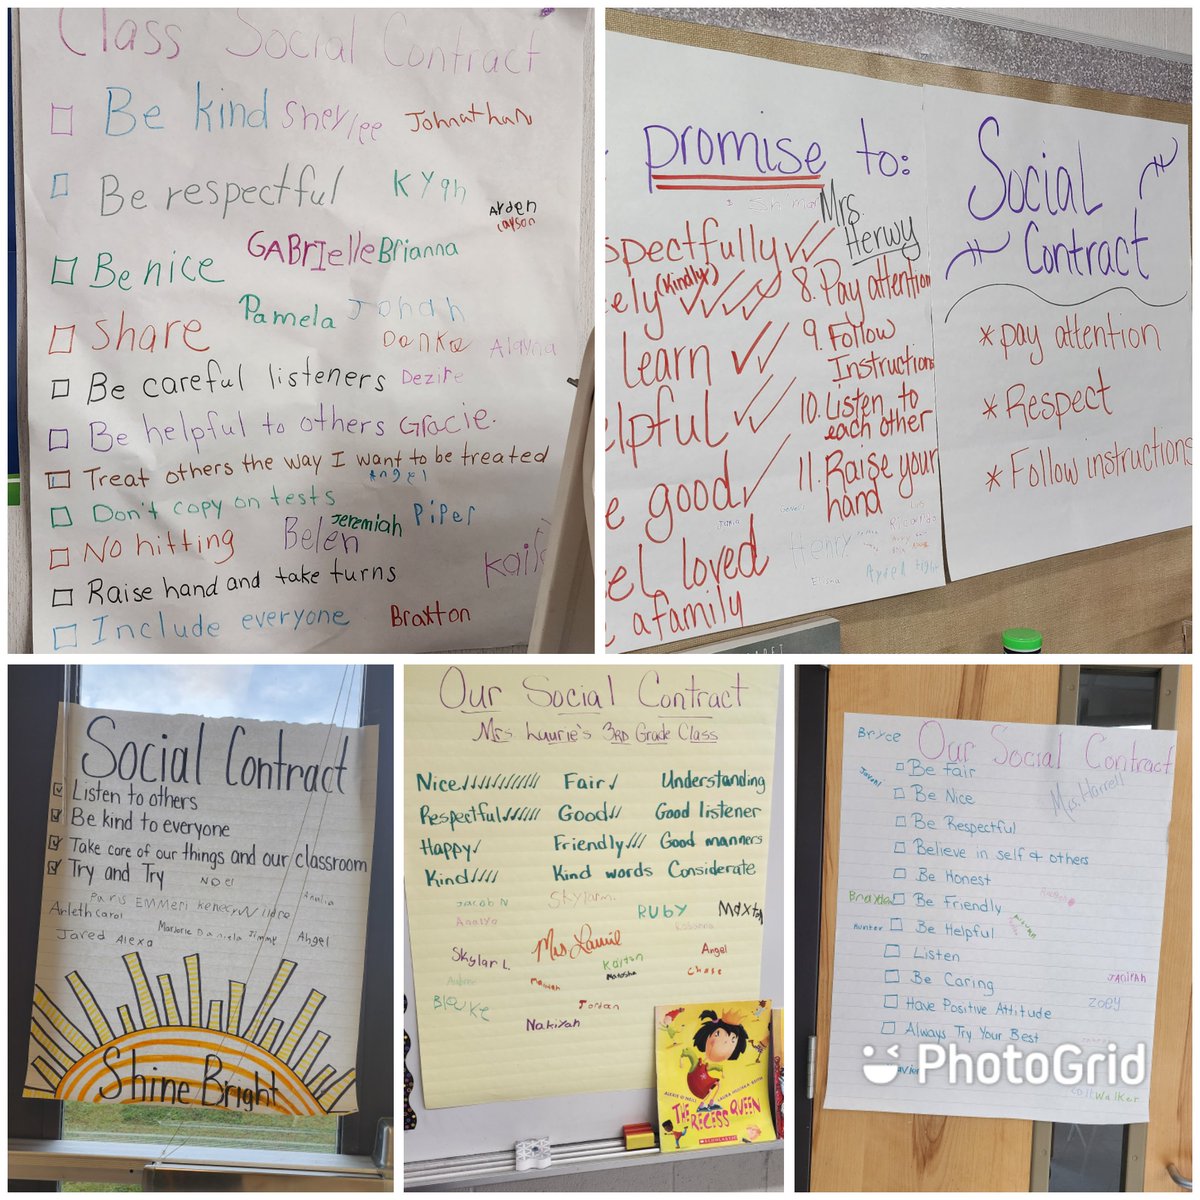 Class Social Contract
Be kind Sheylee Johnathan
Be respectful Kyah
Arden
Carson
Be nice GABrIelle Brianna
Pamela Jonah
Share Danka Alayna
Be careful listeners Dezire
Be helpful to others Gracie.
Treat others the way I want to be treated
Angel
Don't copy on tests
Jeremiah Piper
No hitting Belen
Raise hand and take turns
Include everyone Braxton
promise to:
Mrs.
Herwy
spectfully
ely (kindly)
learn
lpful
e good
el loved
a family
8. Pay attention
9. Follow
Instructions
10. Listen to
each other
11. Raise your
hand
Henry
Social
Contract
* pay attention
* Respect
* Follow instructions
Social Contract
Listen to others
Be kind to everyone
Take care of our things and our classroom
Try and Try
Noel
Paris EMMeri
Analia
Arleth Carol
Marjorie Daniela Jimmy Angel
Jared Alexa
Shine Bright
Our Social Contract
Mrs Laurie's 3RD Grade Class
Nice Fair Understanding
Respectful Good Good listener
Happy Friendly Good manners
Kind Kind words Considerate
Jacob N Skylar
Analya RUBY
Mrs. Laurie
Skylar L. Kolton Angel
Natasha Chase
Jordan
Nakiyah
ALEXIS O'NEILL LAURA HULISKA-BEITH
THE RECESS QUEEN
SCHOLASTIC
Bryce Our Social Contract
Be Fair
Be Nice Mrs. Harrell
Be Respectful
Believe in self & others
Be Honest
Be Friendly
Be Helpful
Hunter
Listen
Be Caring
Zoey
Have Positive Attitude
Always Try Your Best
PhotoGrid
Walker